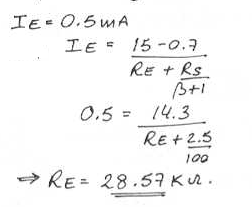 IE = 0.5mA
IE = 15-0.7
RE + RS
β+1
0.5 = 14.3
RE + 2.5
100
⇒ RE = 28.57 K Ω.